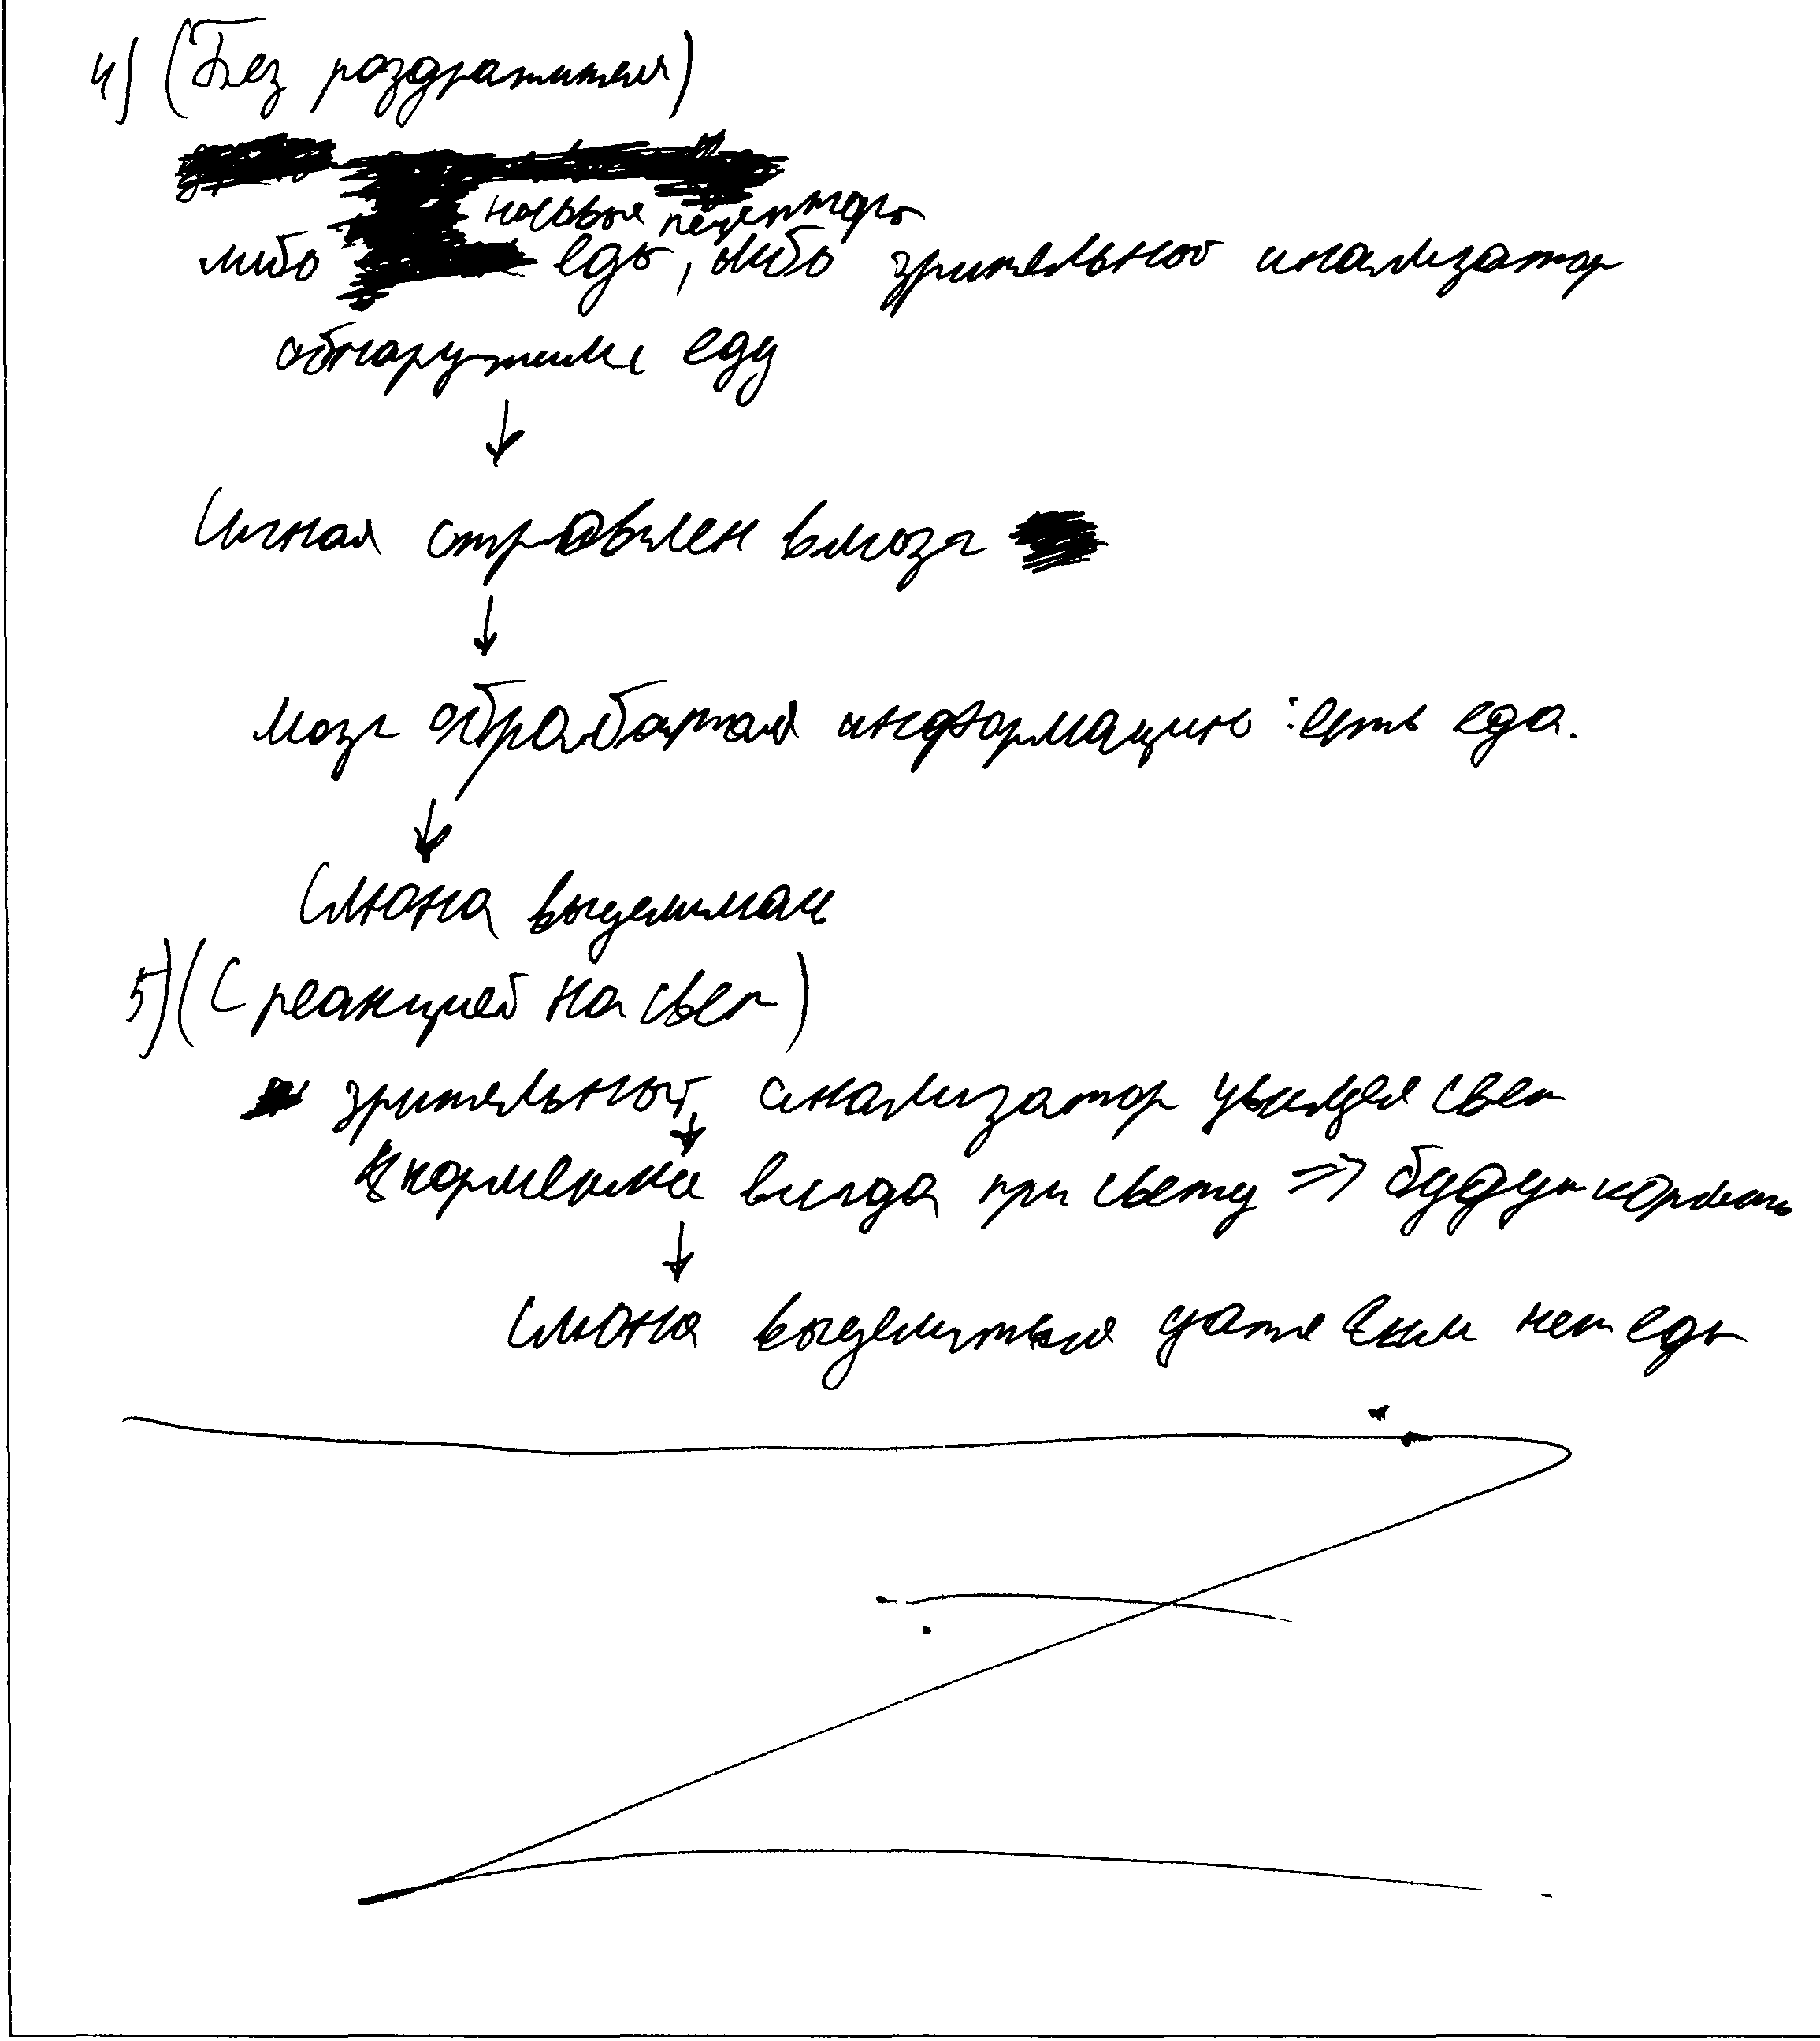 4) (Без раздражителя)
носовые рецепторы
либо еды, либо зрительной анализатор
обнаружили еду
↓
Сигнал отправлен в мозг
↓
мозг обработал информацию: есть еда.
↓
Слюна выделилась
5) (С реакцией на свет)
зрительный анализатор увидел свет
↓
кормежка всегда при свету => будут кормить
↓
Слюна выделиться даже если нет еды